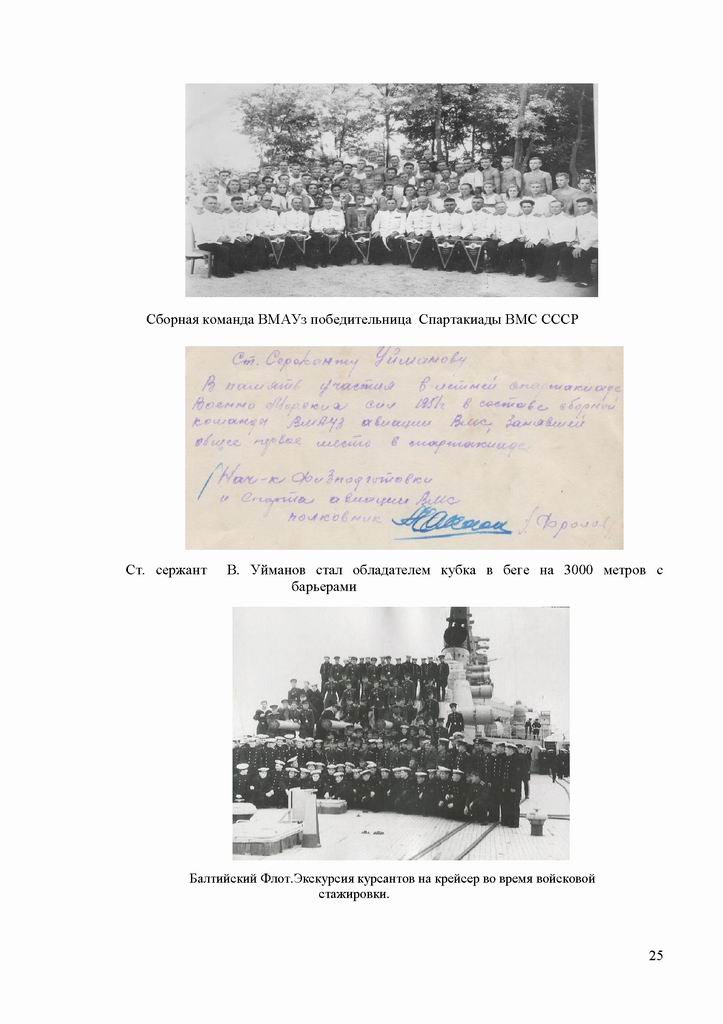 Сборная команда ВМАУз победительница Спартакиады ВМС СССР
Ст. Сержанту Уйманову
В память участия в летней спартакиаде
Военно Морских сил 1951г в составе сборной
команды ВМАУЗ авиации ВМС, Занявшей
общее первое место в спартакиаде
Нач-к Физподготовки
и Спорта авиации ВМС
полковник /Фролов/
Ст. сержант В. Уйманов стал обладателем кубка в беге на 3000 метров с
барьерами
Балтийский Флот.Экскурсия курсантов на крейсер во время войсковой
стажировки.
25